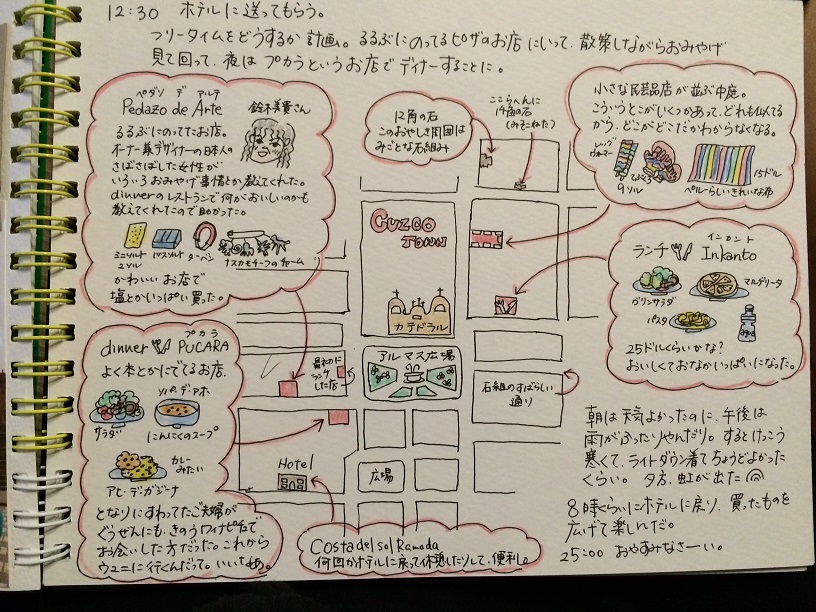 12:30 ホテルに送ってもらう。
フリータイムをどうするか計画。るるぶにのってるピザのお店にいって、散策しながらおみやげ
見て回って、夜はプカラというお店でディナーすることに。
ペダソ デ アルテ
Pedazo de Arte
鈴木美貴さん
るるぶにのってたお店。
オーナー兼デザイナーの日本人の
さばさばした女性が
いろいろおみやげ事情とか教えてくれた。
dinnerのレストランで何がおいしいのかも
教えてくれたので助かった。
ミニソルト
2ソル
バスソルト
ターバン
ナスカモチーフのチャーム
かわいいお店で
塩とかいっぱい買った。
12角の石
このおやしき周囲は
みごとな石組み
ここらへんに
14角の石
(みそこねた)
小さな民芸品店が並ぶ中庭。
こういうとこがいくつかあって、どれも似てる
から、どこがどこだかわからなくなる。
レッグ
ウォーマー
てぶくろ
9ソル
15ドル
ペルーらしいきれいな布
CUZCO
TOWN
カテドラル
ランチ
インカント
Inkanto
グリンサラダ
マルゲリータ
パスタ
25ドルくらいかな?
おいしくておなかいっぱいになった。
dinner
プカラ
PUCARA
よく本とかにでてるお店。
サラダ
ソパ・デ・アホ
にんにくのスープ
カレー
みたい
アヒ・デ・ガジーナ
となりにすわってたご夫婦が
ぐうぜんにも、きのうワイナピチュで
お会いした方だった。これから
ウユニに行くんだって。いいなぁ。
最初に
ランチ
した店
アルマス広場
石組のすばらしい
通り
Hotel
広場
Costa del sol Ramada
何回かホテルに戻って休憩したりして、便利。
朝は天気よかったのに、午後は
雨がふったりやんだり。するとけっこう
寒くて、ライトダウン着てちょうどよかった
くらい。夕方、虹が出た
8時くらいにホテルに戻り、買ったものを
広げて楽しんだ。
25:00 おやすみなさーい。